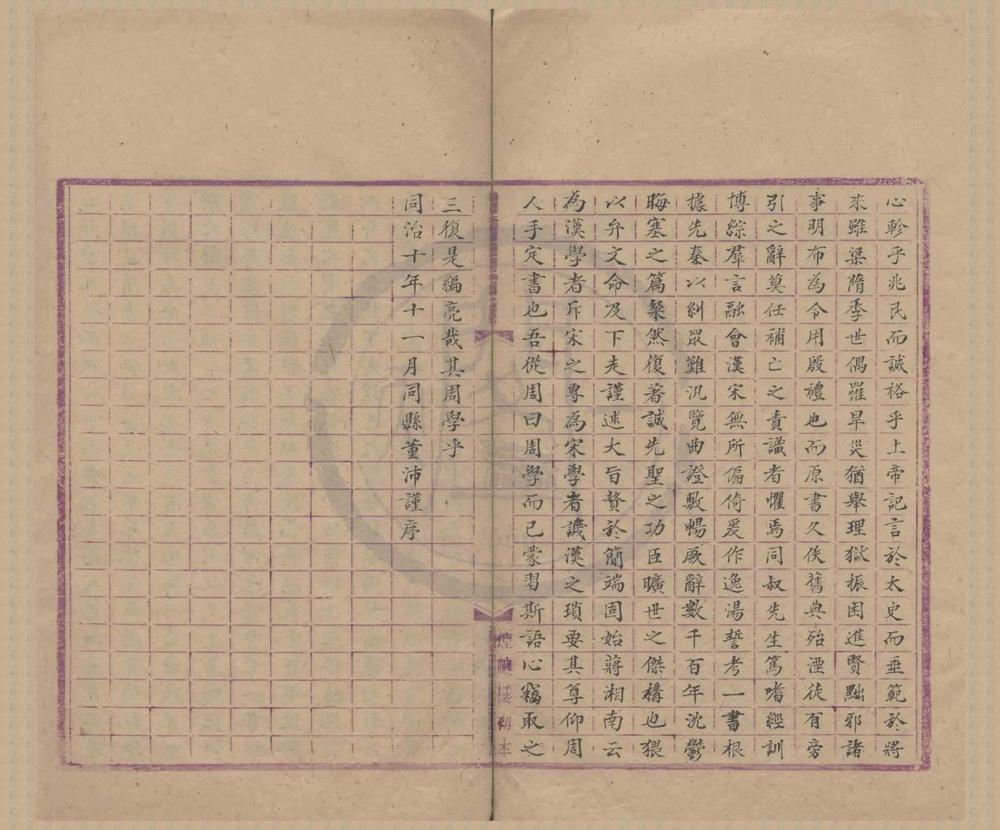 心軫乎兆民而誠格乎上帝記言於太史而垂範於將
來雖梁隋季世偶罹旱災猶舉理獄振困進賢黜邪諸
事明布為令用殷禮也而原書久佚舊典殆湮徒有旁
引之辭莫任補亡之責識者懼焉同叔先生篤嗜經訓
博綜羣言融會漢宋無所偏倚爰作逸湯誓考一書根
據先秦以糾眾難汎覽曲證敷暢厥辭數千百年沈鬱
晦塞之篇粲然復著誠先聖之功臣曠世之傑構也猥
以弁文命及下走謹述大旨贅於簡端固始蔣湘南云
為漢學者斥宋之專為宋學者譏漢之瑣要其尊仰周
人手定書也吾從周曰周學而已蒙習斯語心竊取之
三復是編亮哉其周學乎
同治十年十一月同縣董沛謹序
煙嶼樓初本